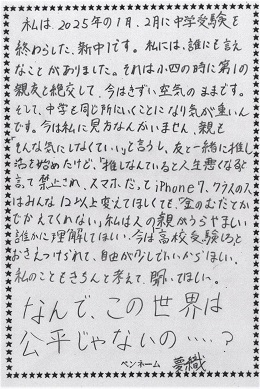 私は2025年の1月、2月に中学受験を
終わらした、新中1です。私には、誰にも言え
なことがありました。それは小四の時に第1の
親友と絶交して、今はきずい空気のままです。
そして、中学も同じ所にいくことになり気が重いん
です。今は私に見方なんかいません、親も
そんな気にしなくていいっと言うし、友と一緒に推し
活を始めたけど、「推しなんていると人生悪くなる」と
言って禁止され、スマホだってiPhone7、クラスの人
はみんな12以上変えてほしくても、「金のむだ」とか
でかえてくれない。私は人の親がうらやましい
誰かに理解してほしい。今は「高校受験しろ」と
おさえつけられて、自由が少しでいいからほしい。
私のこともきちんと考えて、聞いてほしい。
なんで、この世界は
公平じゃないの・・・・?
ペンネーム 夢織